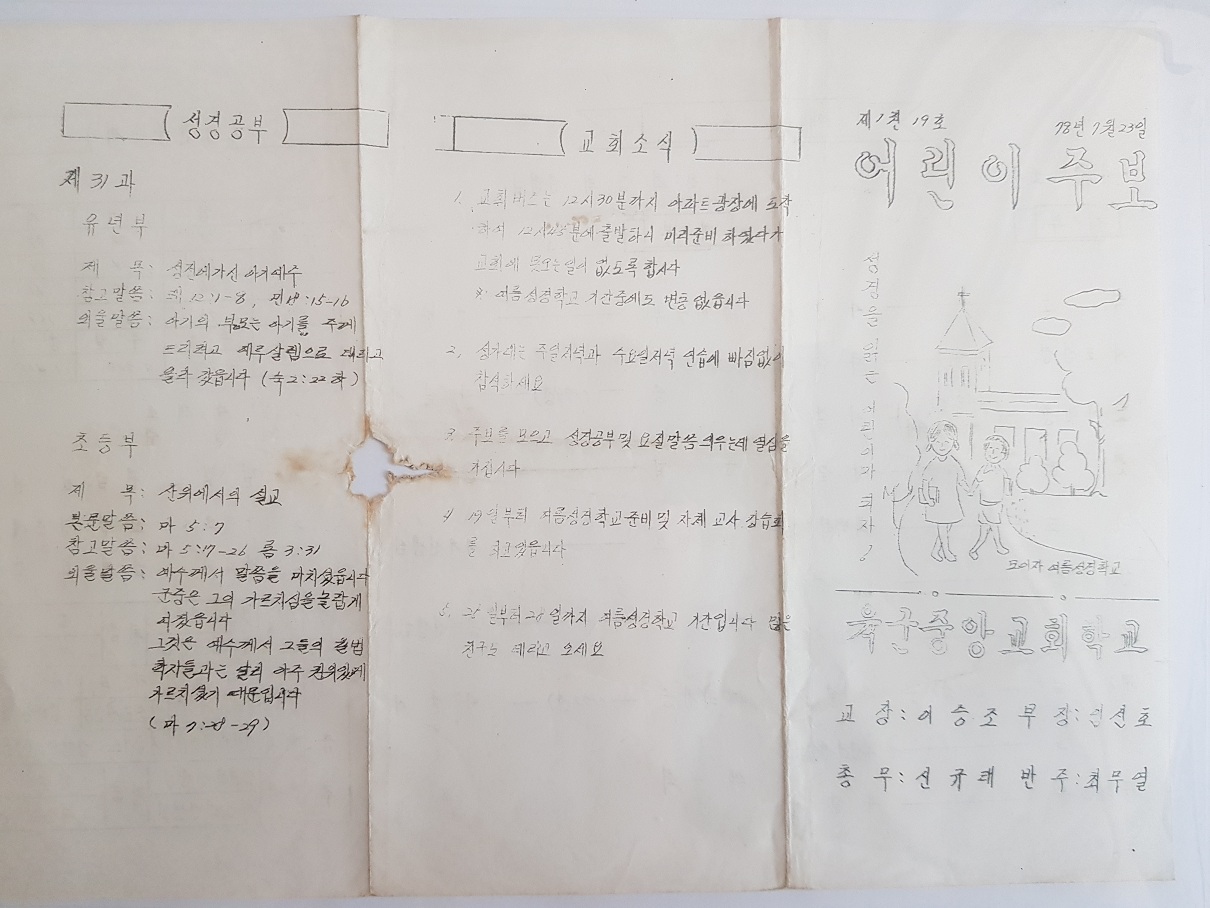 성경공부
제 31 과
유년부
제 목: 성전에가신 아기예수
참고말씀: 레 12:1-8, 민 18:15-16
외울말씀: 아기의 부모는 아기를 주께
드리려고 예루살렘으로 데리고
올라 갔읍니다 (눅 2:22하)
초등부
제 목: 산위에서의 설교
본문말씀: 마 5:7
참고말씀: 마 5:17-26 롬 3:31
외울말씀: 예수께서 말씀을 마치셨읍니다
군중은 그의 가르치심을 놀랍게
여겼읍니다
그것은 예수께서 그들의 율법
학자들과는 달리 아주 권위있게
가르치셨기 때문입니다
(마 7:28-29)
교회소식
1. 교회버스는 12시30분까지 아파트광장에 도착
하여 12시45분에 출발하니 미리준비 하였다가
교회에 못오는일이 없도록 합시다
※ 여름성경학교 기간중에도 변동 없읍니다
2. 성가대는 주일저녁과 수요일저녁 연습에 빠짐없이
참석하세요
3. 주보를 모으고 성경공부및 요절말씀 외우는데 열심을
가집시다
4. 19일부터 여름성경학교준비및 자체 교사 강습회
를 하고있읍니다
5. 일부터 28일까지 여름성경학교 기간입니다 많은
친구를 데리고 오세요
제1권 19호
78년 7월 23일
어린이 주보
성경을 읽는 어린이가 되자!
코이자 여름성경학교
육군중앙교회학교
교 장: 이승조 부 장: 선호
총 무: 신규태 반 주: 최무열